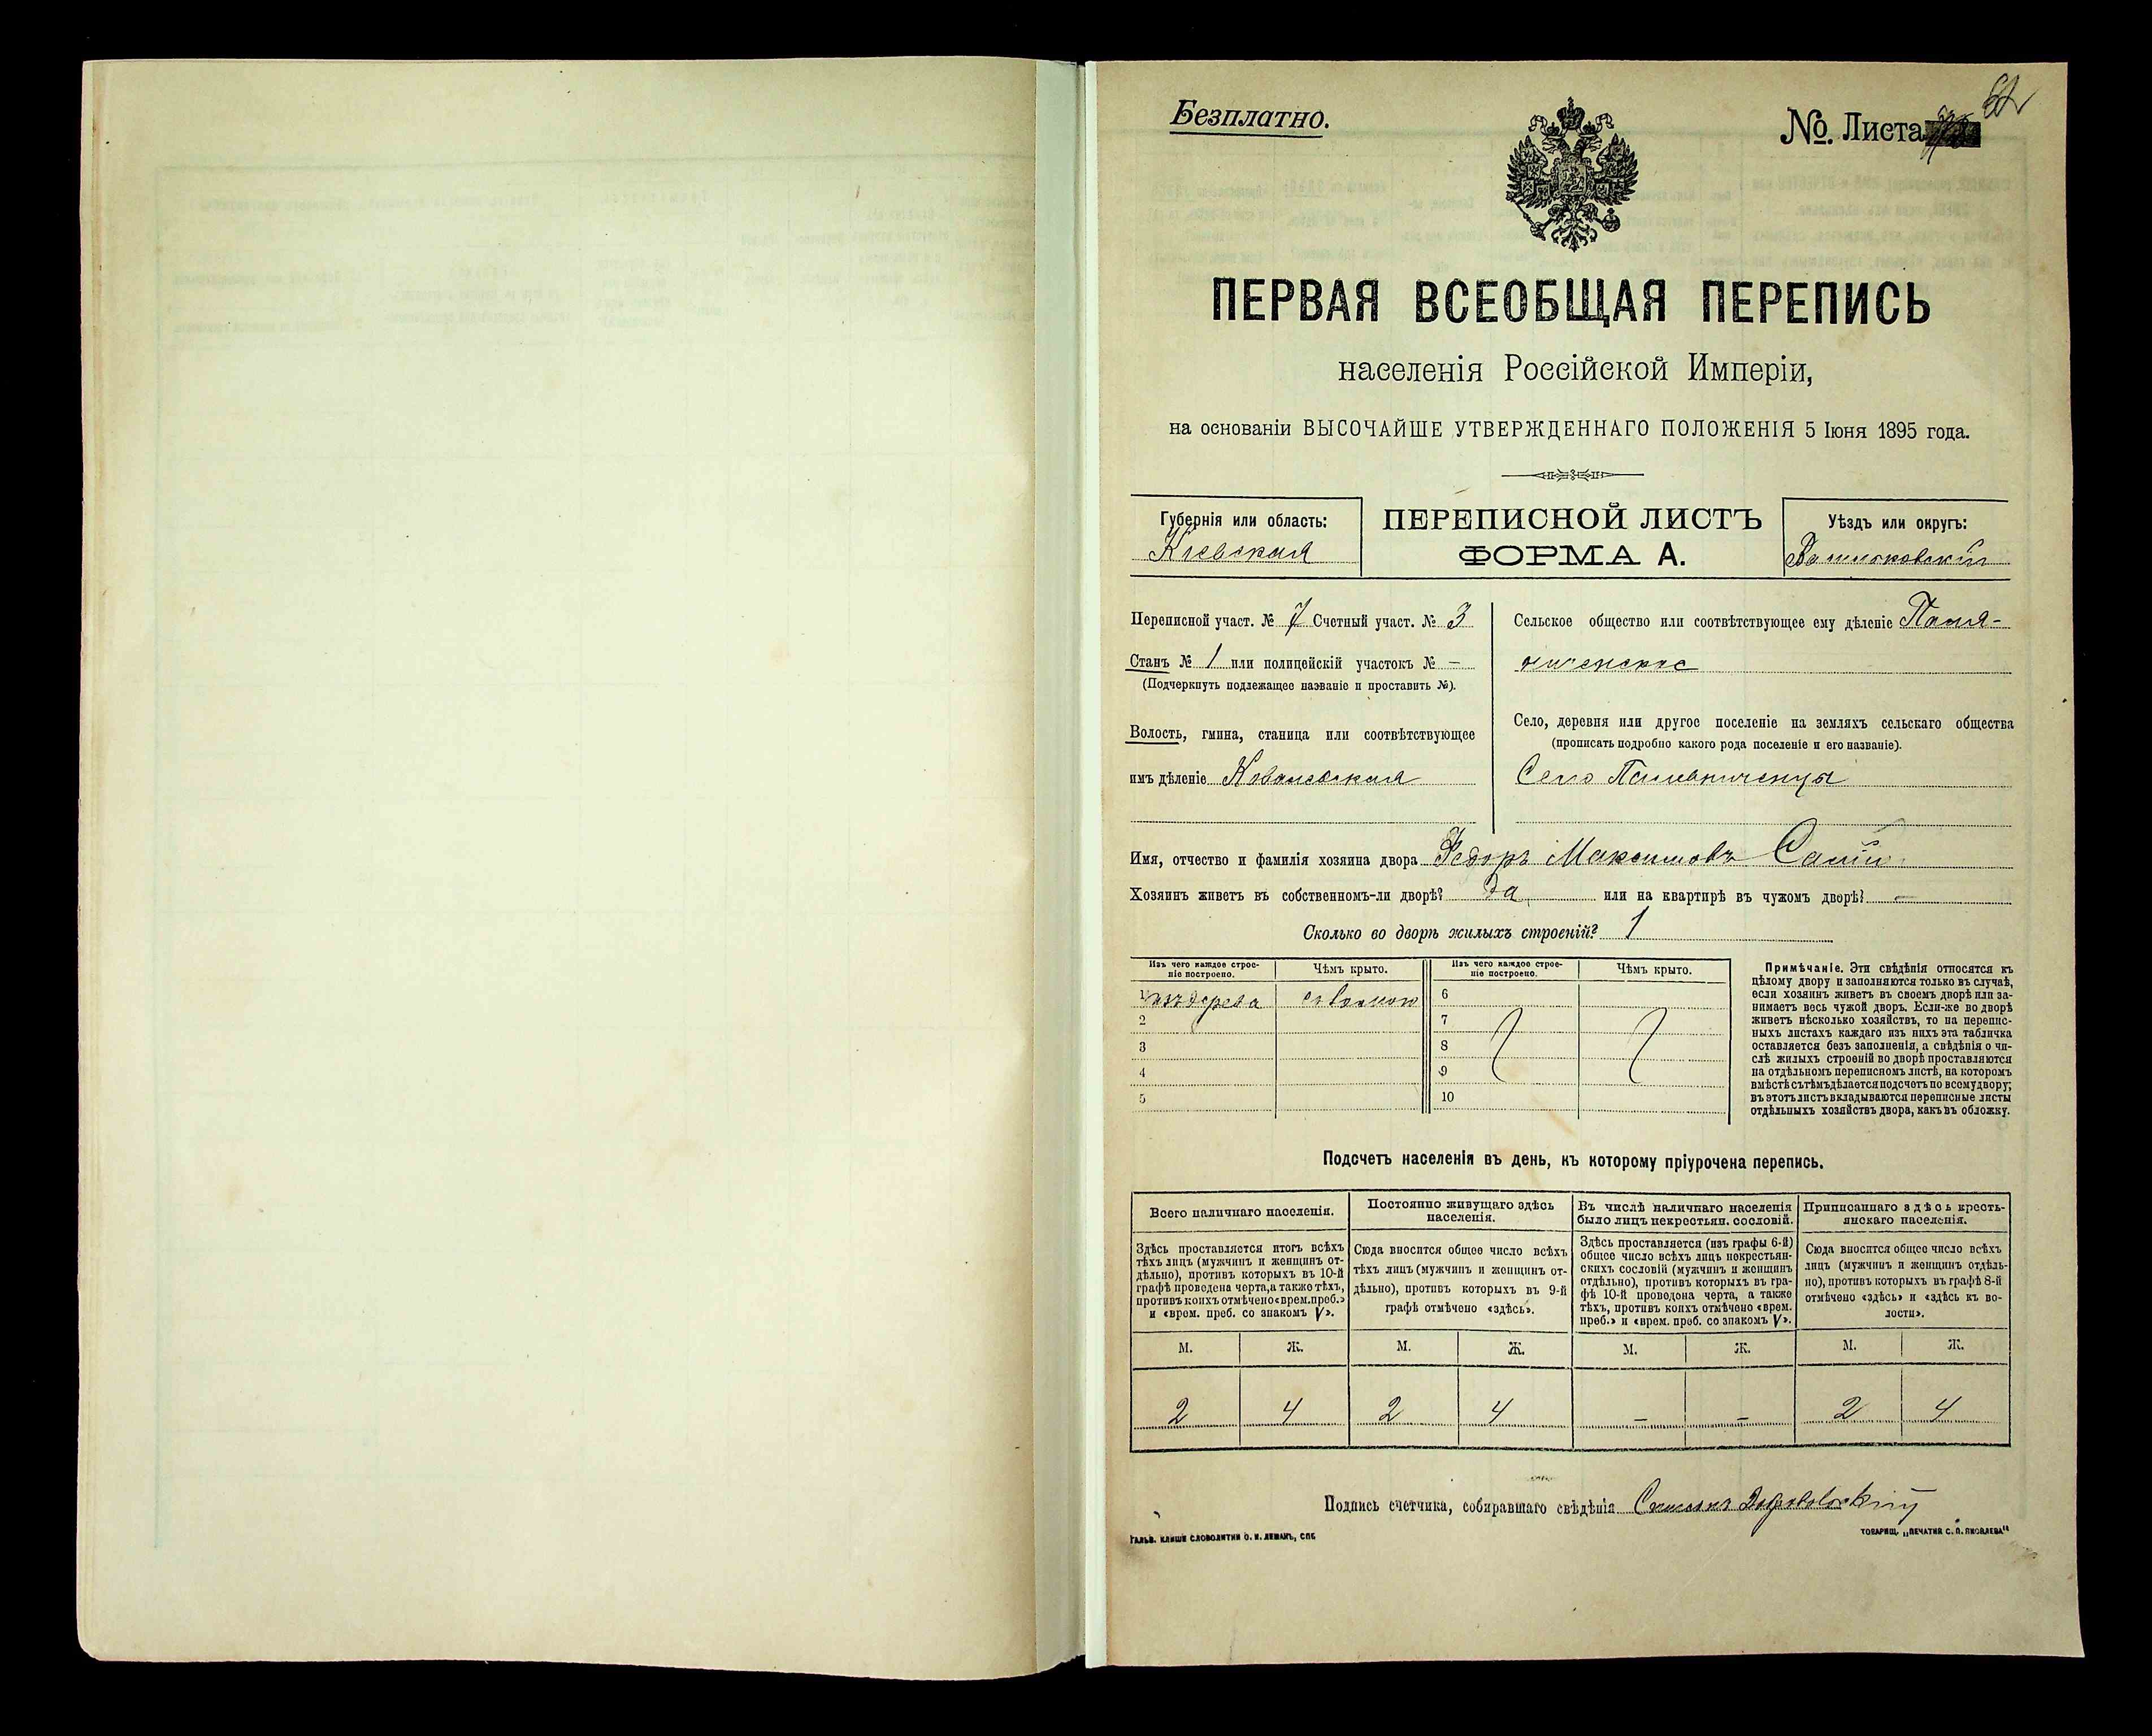 Безплатно.
№ Листа
ПЕРВАЯ ВСЕОБЩАЯ ПЕРЕПИСЬ
населенія Россійской Имперіи,
на основаніи ВЫСОЧАЙШЕ УТВЕРЖДЕННАГО ПОЛОЖЕНІЯ 5 Іюня 1895 года.
Губернія или область:
Кіевская
ПЕРЕПИСНОЙ ЛИСТЪ
ФОРМА А.
Уѣздъ или округъ:
Васильковскій
Переписной участ. № 7 Счетный участ. № 3
Станъ № 1 или полицейскій участокъ № —
(Подчеркнуть подлежащее названіе и проставить №).
Волость, гмина, станица или соотвѣтствующее
имъ дѣленіе Ковалевская
Сельское общество или соотвѣтствующее ему дѣленіе
Село, деревня или другое поселеніе на земляхъ сельскаго общества
(прописать подробно какого рода поселеніе и его названіе).
Село
Имя, отчество и фамилія хозяина двора Федоръ Максимовъ Салій
Хозяинъ живетъ въ собственномъ-ли дворѣ? Да или на квартирѣ въ чужомъ дворѣ? —
Сколько во дворѣ жилыхъ строеній? 1
Изъ чего каждое строеніе построено.
Чѣмъ крыто.
Изъ чего каждое строеніе построено.
Чѣмъ крыто.
1 изъ дерева соломою 6
2 7
3 8
4 9
5 10
Примѣчаніе. Эти свѣдѣнія относятся къ
цѣлому двору и заполняются только въ случаѣ,
если хозяинъ живетъ въ своемъ дворѣ или за-
нимаетъ весь чужой дворъ. Если-же во дворѣ
живетъ нѣсколько хозяйствъ, то на перепис-
ныхъ листахъ каждаго изъ нихъ эта табличка
оставляется безъ заполненія, а свѣдѣнія о чи-
слѣ жилыхъ строеній во дворѣ проставляются
на отдѣльномъ переписномъ листѣ, на которомъ
вмѣстѣ съ тѣмъ дѣлается подсчетъ по всему двору;
въ этотъ листъ вкладываются переписные листы
отдѣльныхъ хозяйствъ двора, какъ въ обложку.
Подсчетъ населенія въ день, къ которому пріурочена перепись.
Всего наличнаго населенія.
Здѣсь проставляется итогъ всѣхъ
тѣхъ лицъ (мужчинъ и женщинъ от-
дѣльно), противъ которыхъ въ 10-й
графѣ проведена черта, а также тѣхъ,
противъ коихъ отмѣчено «врем. преб.»
и «врем. преб. со знакомъ V».
Постоянно живущаго здѣсь
населенія.
Сюда вносится общее число всѣхъ
тѣхъ лицъ (мужчинъ и женщинъ от-
дѣльно), противъ которыхъ въ 9-й
графѣ отмѣчено «здѣсь».
Въ числѣ наличнаго населенія
было лицъ некрестьян. сословій.
Здѣсь проставляется (изъ графы 6-й)
общее число всѣхъ лицъ некрестьян-
скихъ сословій (мужчинъ и женщинъ
отдѣльно), противъ которыхъ въ гра-
фѣ 10-й проведена черта, а также
тѣхъ, противъ коихъ отмѣчено «врем.
преб.» и «врем. преб. со знакомъ V».
Приписаннаго здѣсь кресть-
янскаго населенія.
Сюда вносится общее число всѣхъ
лицъ (мужчинъ и женщинъ отдѣль-
но), противъ которыхъ въ графѣ 8-й
отмѣчено «здѣсь» и «здѣсь къ во-
лости».
М. Ж. М. Ж. М. Ж. М. Ж.
2 4 2 4 – – 2 4
Подпись счетчика, собиравшаго свѣдѣнія
ГАЛЬВ. КЛИШЕ СЛОВОЛИТНИ О. И. ЛЕМАНЪ, СПБ
ТОВАРИЩ. „ПЕЧАТНЯ С. П. ЯКОВЛЕВА"